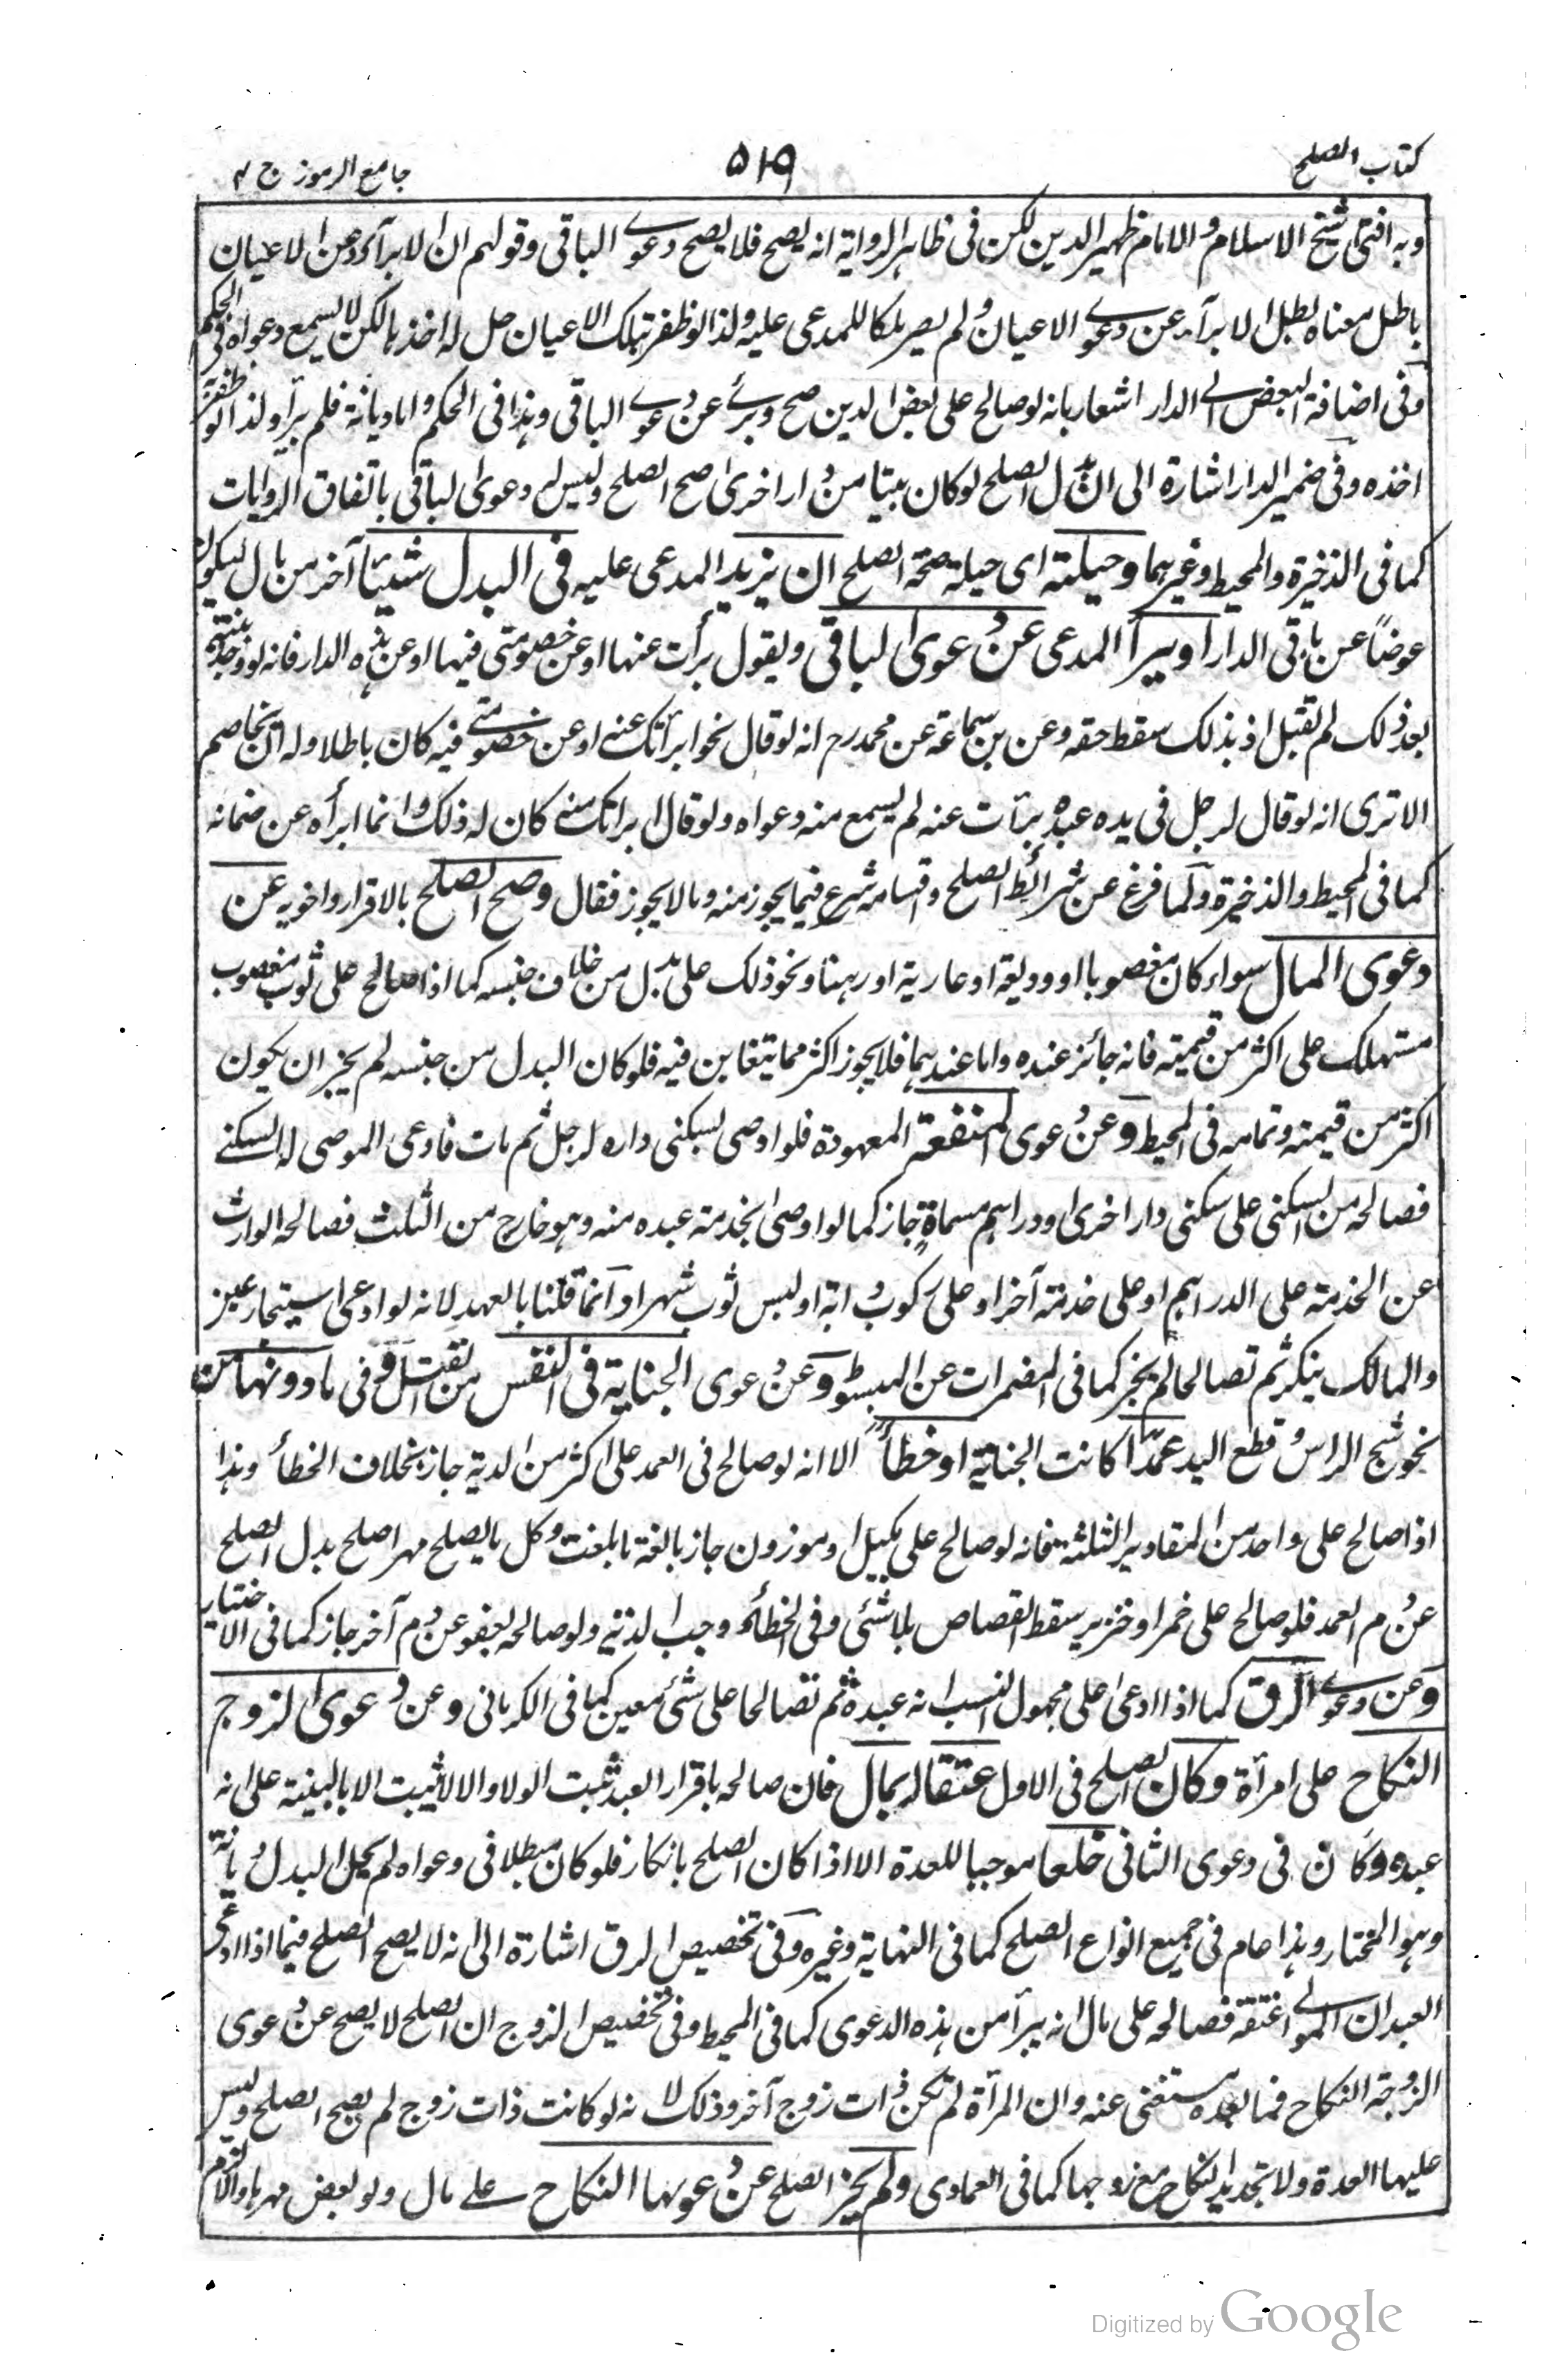 كتاب الصلح
٥١٩
جامع الرموز ج ٢
وبه افتى شيخ الاسلام والامام ظهير الدين لكن فى ظاهر الرواية انه يصح فلا يصح دعوى الباقى وقولهم ان الابراء عن الاعيان
باطل معناه بطل الابراء عن دعوى الاعيان ولم يصر ملكا للمدعى عليه ولذا لو ظفر بتلك الاعيان حل له اخذها لكن لا يسمع دعواه فى الحكم
وفى اضافة البعض الى الدار اشعار بانه لو صالح على بعض الدين صح وبرئ عن دعوى الباقى وهذا فى الحكم واما ديانة فلم يبرأ ولذا لو ظفر به
اخذه وفى ضمير الدار اشارة الى ان بدل الصلح لو كان بيتا من دار اخرى صح الصلح وليس له دعوى الباقى باتفاق الروايات
كما فى الذخيرة والمحيط وغيرهما وحيلته اى حيلة صحة الصلح ان يزيد المدعى عليه فى البدل شيئا آخر من مال ليكون
عوضا عن باقى الدار او يبرأ المدعى عن دعوى الباقى ويقول برأت عنها او عن خصومتى فيها او عن هذه الدار فانه لو وجد بينته
بعد ذلك لم تقبل اذ بذلك سقط حقه وعن بن سماعة عن محمد رح انه لو قال نحو ابرأتك عنه او عن خصومتى فيه كان باطلا وله ان يخاصم
الا ترى انه لو قال لرجل فى يده عبد برأت عنه لم يسمع منه دعواه ولو قال ابرأتك منه كان له ذلك وانما ابرأه عن ضمانه
كما فى المحيط والذخيرة ولما فرغ عن شرائط الصلح واقسامه شرع فيما يجوز منه وما لا يجوز فقال وصح الصلح بالاقرار واخويه عن
دعوى المال سواء كان مغصوبا او وديعة او عارية او رهنا ونحو ذلك على بدل من خلاف جنسه كما اذا صالح على ثوب مغصوب
مستهلك على اكثر من قيمته فانه جائز عنده واما عندهما فلا يجوز اكثر مما يتغابن فيه فلو كان البدل من جنسه لم يجز ان يكون
اكثر من قيمته وتمامه فى المحيط وعن دعوى المنفعة المعهودة فلو اوصى بسكنى داره لرجل ثم مات فادعى الموصى له السكنى
فصالحه من السكنى على سكنى دار اخرى او دراهم مسماة جاز كما لو اوصى بخدمة عبده منه وهو خارج من الثلث فصالحه الوارث
عن الخدمة على الدراهم او على خدمة آخر او على ركوب دابة او لبس ثوب شهرا وانما قلنا بالعهد لانه لو ادعى استيجار عين
والمالك ينكر ثم تصالحا لم يجز كما فى المضمرات عن المبسوط وعن دعوى الجناية فى النفس من القتل وفى ما دونها من
نحو شج الراس وقطع اليد عمدا كانت الجناية او خطأ الا انه لو صالح فى العمد على اكثر من الدية جاز بخلاف الخطأ وهذا
اذا صالح على واحد من المقادير الثلثة فانه لو صالح على مكيل او موزون جاز بالغة ما بلغت وكل ما يصلح مهرا صلح بدل الصلح
عن دم العمد فلو صالح على خمر او خنزير سقط القصاص بلا شئ وفى الخطأ وجب الدية ولو صالحه بعفو عن دم آخر جاز كما فى الاختيار
وعن دعوى الرق كما اذا ادعى على مجهول النسب انه عبده ثم تصالحا على شئ معين كما فى الكرمانى وعن دعوى الزوج
النكاح على امرأة وكان الصلح فى الاول عتقا له بمال فان صالحه باقرار العبد ثبت الولاء والا لا يثبت الا بالبينة على انه
عبده وكان فى دعوى الثانى خلعا موجبا للعدة الا اذا كان الصلح بانكار فلو كان مبطلا فى دعواه لم يحل البدل ديانة
وهو المختار وهذا عام فى جميع انواع الصلح كما فى النهاية وغيره وفى تخصيص الرق اشارة الى انه لا يصح الصلح فيما اذا ادعى
العبد ان المولى اعتقه فصالحه على مال انه يبرأ من هذه الدعوى كما فى المحيط وفى تخصيص الزوج ان الصلح لا يصح عن دعوى
الزوجة النكاح فما بعده مستغنى عنه وان المرأة لم تكن ذات زوج آخر وذلك لا نه لو كانت ذات زوج لم يصح الصلح وليس
عليها العدة ولا تجديد النكاح مع زوجها كما فى العمادى ولم يجز الصلح عن دعويها النكاح على مال ولو بعض مهرها والا لزم
Digitized by Google